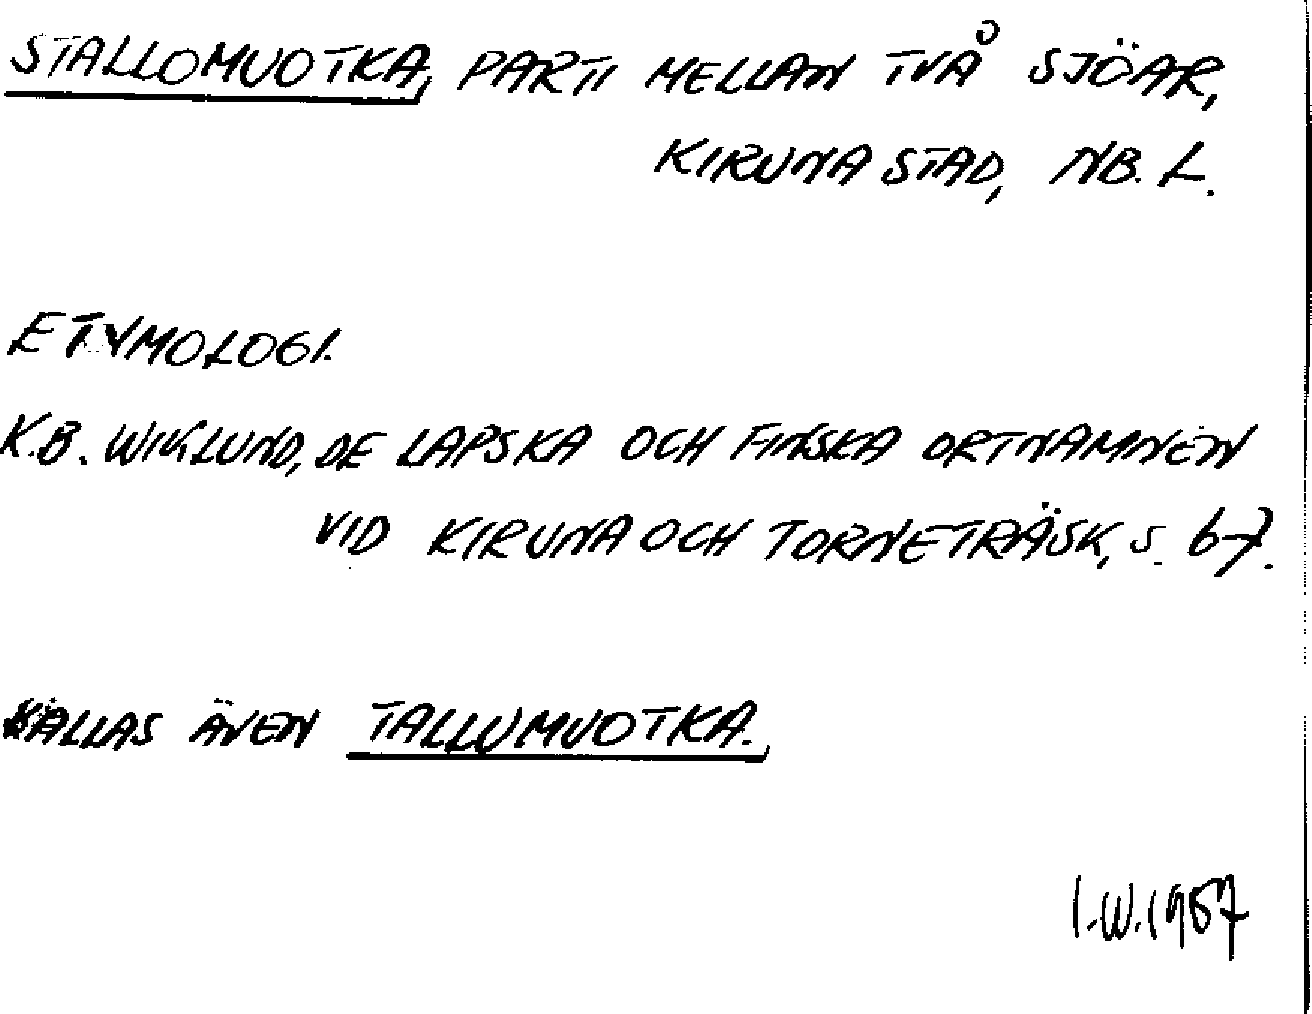 STALLOMUOTKA, PARTI MELLAN TVÅ SJÖAR,
KIRUNA STAD, NB. L.
ETYMOLOGI.
K.B. WIKLUND, DE LAPSKA OCH FINSKA ORTNAMNEN
VID KIRUNA OCH TORNETRÄSK, S. 67.
KALLAS ÄVEN TALLUMUOTKA.
I.W. 1967